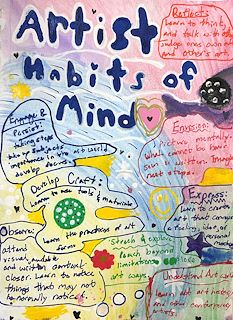 Artist
Habits of
Mind
Reflect:
Learn to think
and talk with others
judge ones own art
and other's art.
Engage &
Persist:
taking steps
subjects
importance in the art world
develop focus.
Envision:
picture mentally
what cannot be
seen or written. Imagine
next steps.
Develop Craft:
Learn to use tools & materials
Learn the practices of art
forms
Express:
Learn to create
art that conveys
a feeling, idea, or
personal
Observe:
attend
visual, audible
and written context
closer. Learn to notice
things that may not
be normally noticed.
Stretch & explore
reach beyond
limitations
art ways
Understand Art
learn art history
and other contemporary
artists.